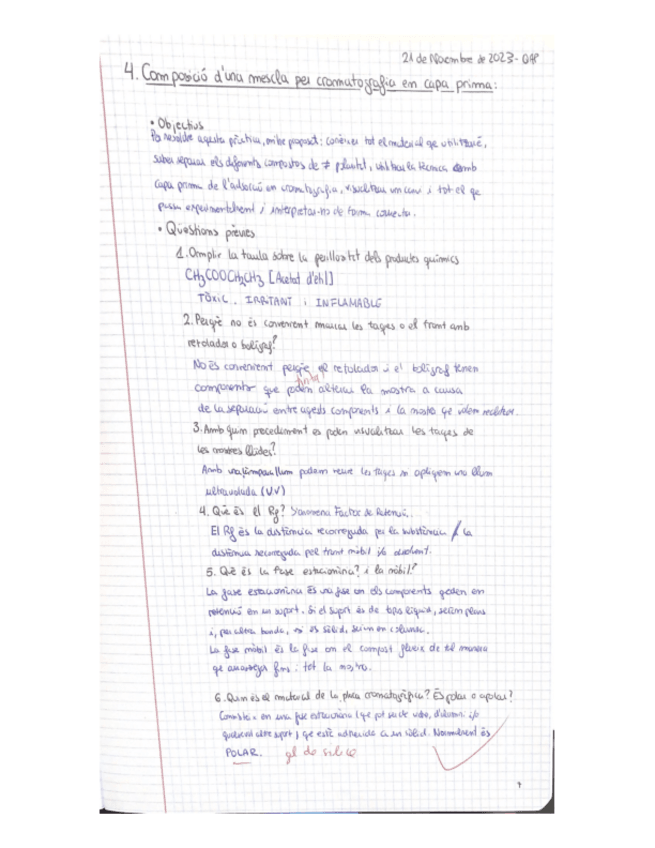 21 de Novembre de 2023 - GAP
4. Composició d'una mescla per cromatografia en capa prima:
• Objectius
Per resoldre aquesta pràctica, em he proposat: conèixer tot el material que utilitzaré,
saber separar els diferents compostos de ≠ utilitzar la tècnica amb
capa prima de l'adsorció en cromatografia, visualitzar i tot el qe
passa experimentalment i interpretar-ho de forma correcta.
• Qüestions prèvies
1. Omplir la taula sobre la perillositat dels productes químics
CH3COOCH2CH3 [Acetat d'etil]
TÒXIC, IRRITANT i INFLAMABLE
2. Perquè no és convenient marcar les taques o el front amb
retolador o bolígraf?
No és convenient perquè el retolador i el bolígraf tenen
tinta
components que poden alterar la mostra a causa
de la separació entre aqests components i la mostra qe volem
3. Amb quin procediment es poden visualitzar les taques de
les mostres
Amb una llum podem veure les taques si apliquem una llum
ultravioleta (UV)
4. Què és el Rf? S'anomena Factor de Retenció.
El Rf és la distància recorreguda per la substància / la
distància recorreguda pel front mòbil i/o dissolvent.
5. Què és la fase estacionària? i la mòbil?
La fase estacionària és una fase on els components qeden en
retenció en un suport. Si el suport és de tipo líquid, seran
i, per altra banda, si és sòlid, seran en columna.
La fase mòbil és la fase on el compost flueix de tal manera
qe tot la mostra.
6. Quin és el material de la placa cromatogràfica? És polar o apolar?
Consisteix en una fase estacionària (qe pot ser de vidre, d'alumini i/o
qualsevol altre suport) qe està adherida a un sòlid. Normalment és
POLAR. gel de sílice